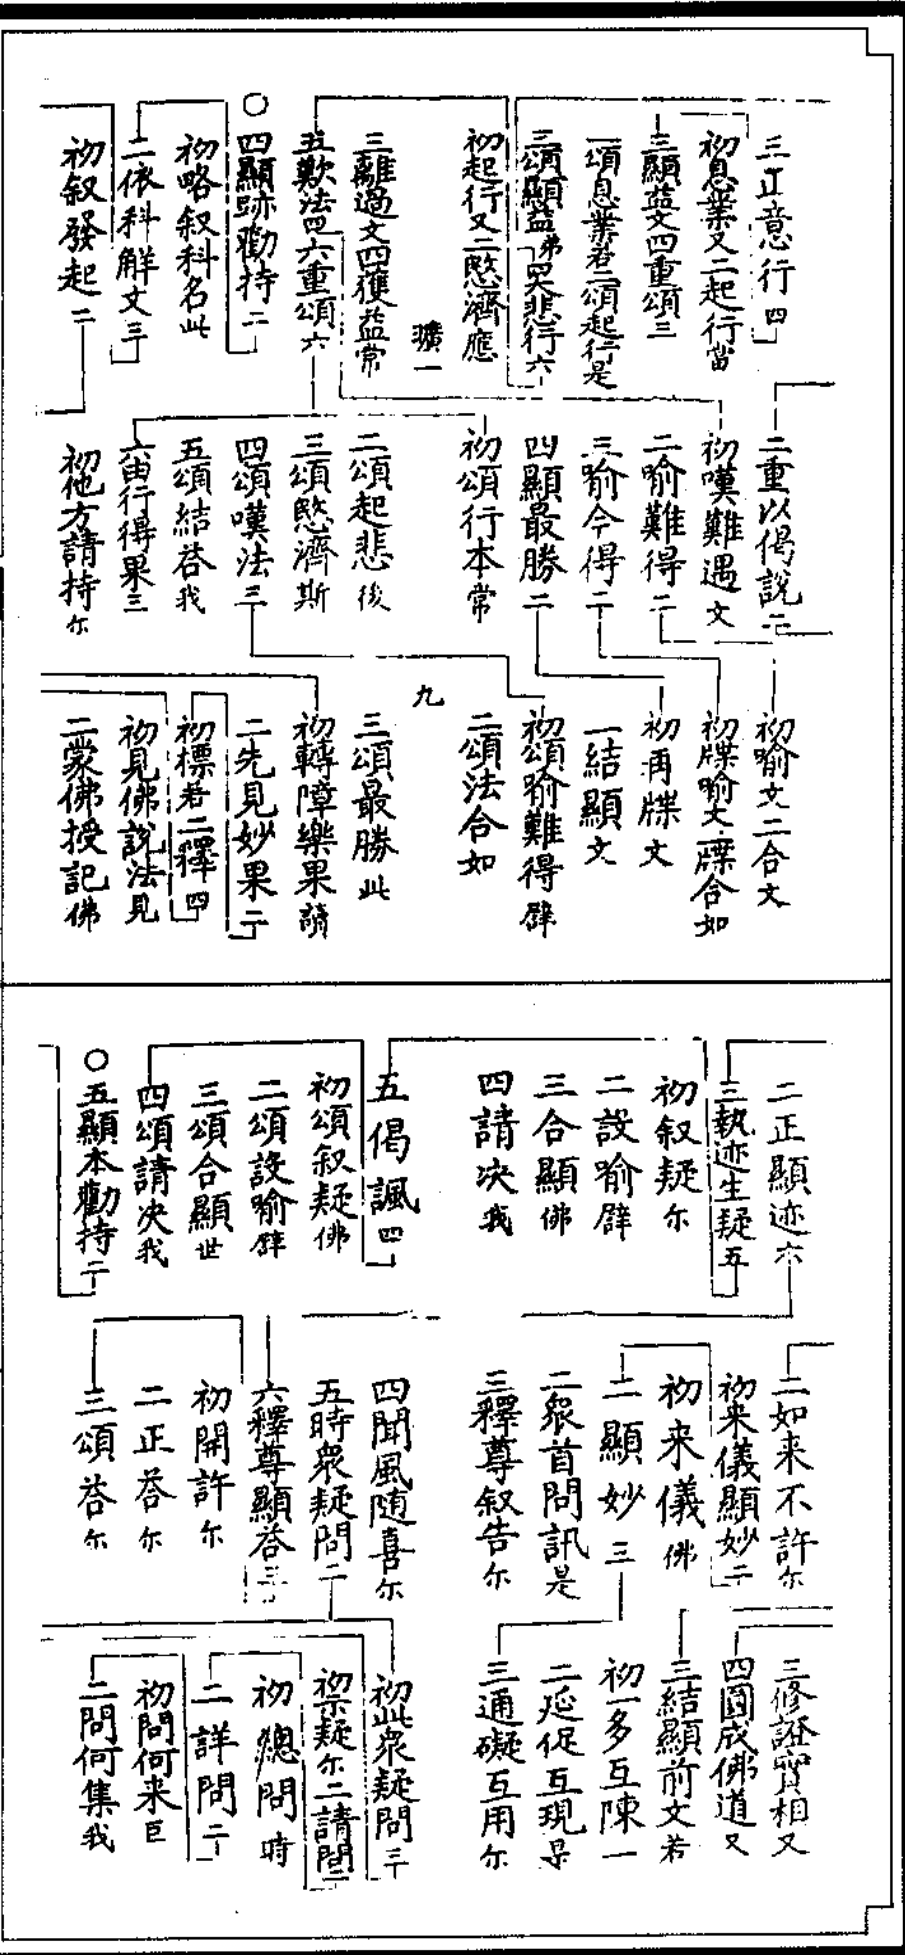 三正意行四
初息業又二起行當
三顯益文四重頌三
一頌息業若二頌起行是
三頌顯益佛四哭悲行六
初起行又二愍濟應
三離過文四獲益常
五歎法四六重頌六
○四顯跡勸持二
初略叙科名此
二依科解文三
初叙發起二
獷一
二重以偈說二
初嘆難遇文
二喻難得二
三喻今得二
四顯最勝二
初頌行本常
二頌起悲後
三頌愍濟斯
四頌嘆法三
五頌結荅我
六由行得果三
初他方請持尒
初喻文二合文
初牒喻文二牒合如
初再牒文
一結顯文
初頌喻難得譬
二頌法合如
九
三頌最勝此
初轉障樂果請
二先見妙果二
初標若二釋四
初見佛說法見
二蒙佛授記佛
二正顯迹六
三執迹生疑五
初叙疑尒
二設喻譬
三合顯佛
四請决我
五偈諷四
初頌叙疑佛
二頌設喻譬
三頌合顯世
四頌請决我
○五顯本勸持二
二如来不許尒
初来儀顯妙二
初来儀佛
二顯妙三
二衆首問訊是
三釋尊叙告尒
四聞風随喜尒
五時衆疑問二
六釋尊顯荅三
初開許尒
二正荅尒
三頌荅尒
三修證實相又
四圓成佛道又
三結顯前文若
初一多互陳一
二延促互現是
三通礙互用尒
初此衆疑問三
初懷疑尒二請問二
初總問時
二詳問二
初問何来巨
二問何集我